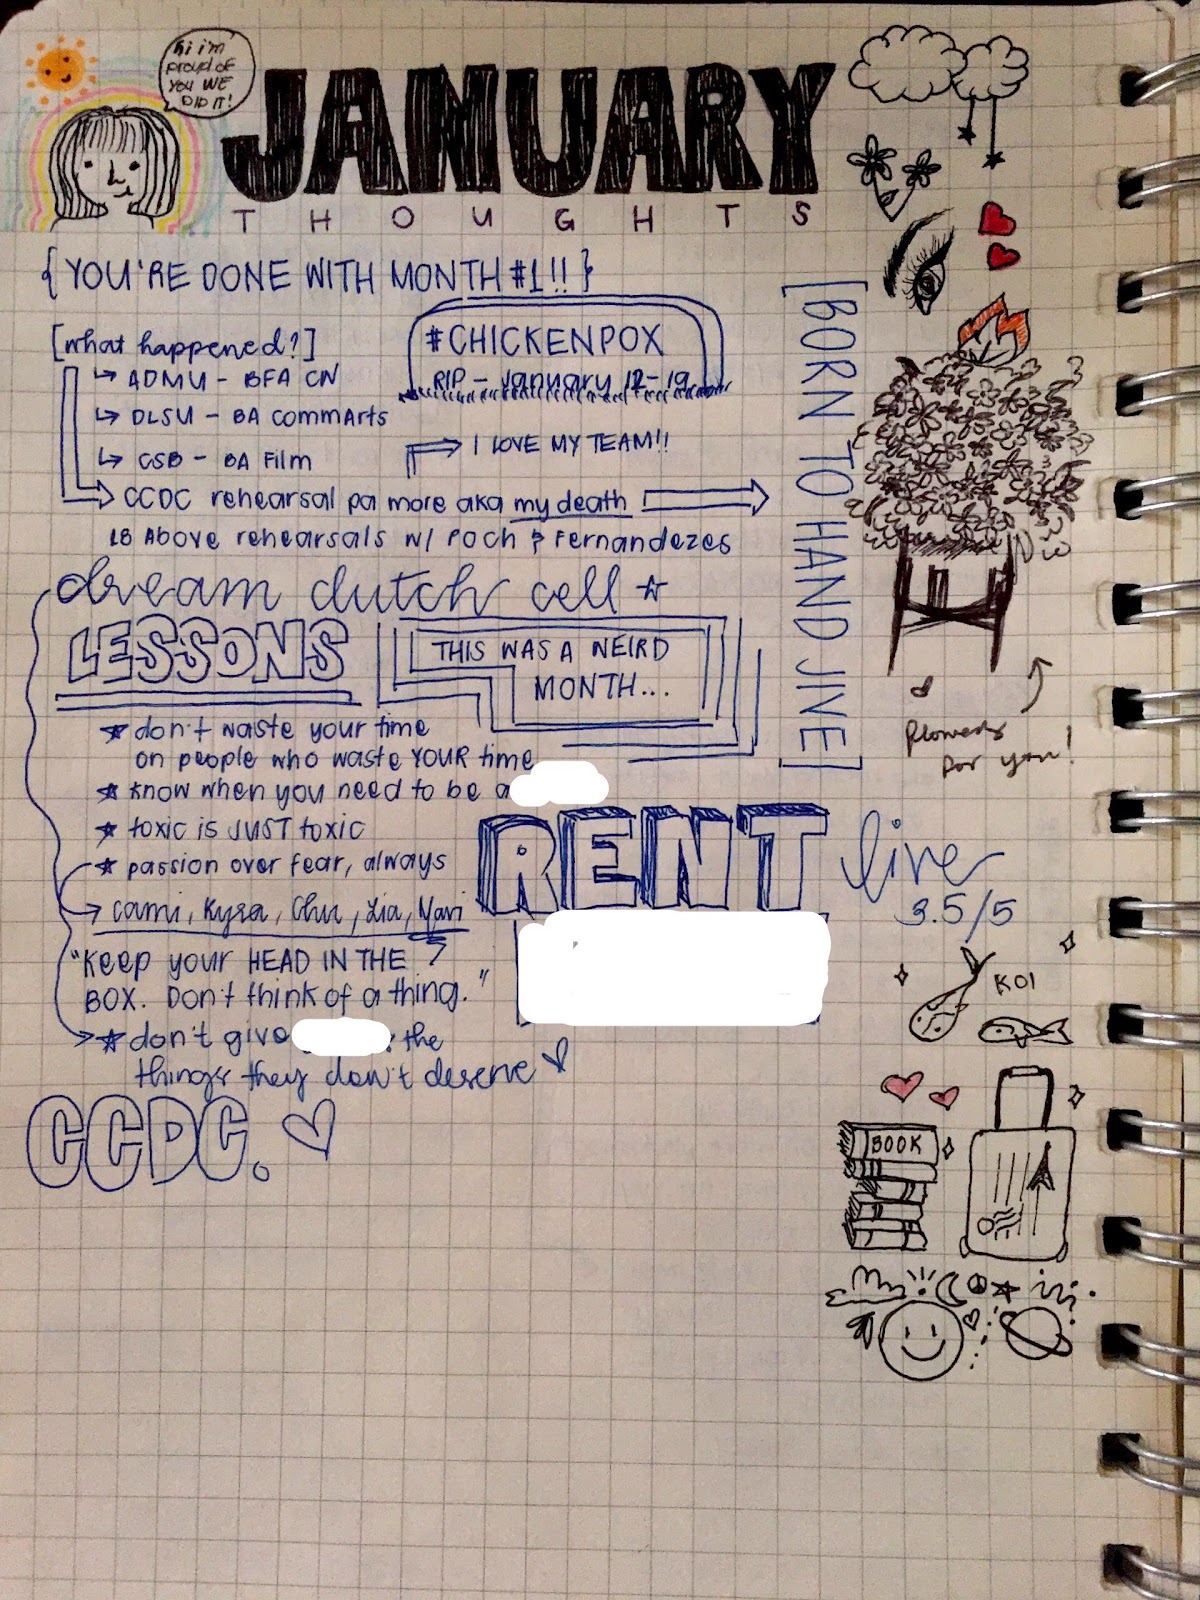 hi i'm
proud of
you WE
DID IT!
JANUARY
THOUGHTS
{YOU'RE DONE WITH MONTH #1!!}
[what happened?]
↳ ADMU - BFA CN
↳ DLSU - BA COMMArts
↳ CSB - BA Film
#CHICKENPOX
RIP - January 12-19
→ I LOVE MY TEAM!!
CCDC rehearsal pa more aka my death →
18 Above rehearsals w/ Poch & Fernandezes
[BORN TO HAND JIVE]
dream clutch cell ☆
LESSONS
THIS WAS A WEIRD
MONTH...
☆ don't waste your time
on people who waste YOUR time
☆ know when you need to be a
☆ toxic is JUST toxic
☆ passion over fear, always
→ Cami, Kyra, Chu, Lia,
"Keep your HEAD IN THE
BOX. Don't think of a thing."
☆ don't give the
things they don't deserve ♡
CCDC. ♡
RENT live
3.5/5
flowers
for you!
KOI
BOOK